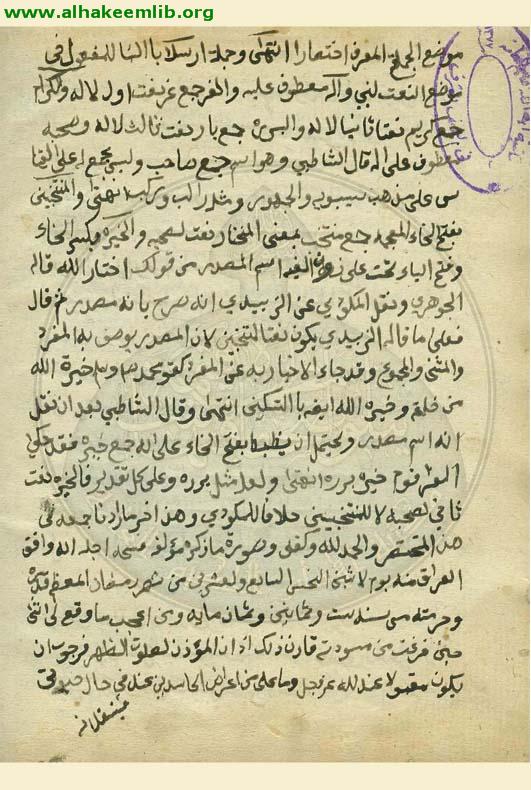 www.alhakeemlib.org
موضع الجملة المعرفة اختصارا انتهى وجملة ارسلا بالبنا للمفعول في
موضع النعت لنبي وآله معطوف عليه والغر جمع غر نعت اول لآله والكرام
جمع كريم نعتا ثانيا لآله والبررة جمع بار نعت ثالث لآله وصحبه
معطوف على اله قال الشاطبي وهو اسم جمع صاحب وليس بجمع له على القيا
س على مذهب سيبويه والجمهور ومثله راكب وركب انتهى والمنتخبين
بفتح الخاء المعجمة جمع منتخب بمعنى المختار نعت لصحبه والخيرة بكسر الخاء
وفتح الياء تحت على اسم المصدر من قولك اختار الله قاله
الجوهري ونقل المكودي عن الزبيدي انه صرح بانه مصدر ثم قال
فعلى ما قاله الزبيدي يكون نعتا للمنتخبين لان المصدر يوصف به المفرد
والمثنى والمجموع وقد جاء الاخبار به عن المفرد كقولهم محمد خيرة الله
من خلقه وخيره الله ايضا بالتسكين انتهى وقال الشاطبي بعد ان نقل
انه اسم مصدر ويحتمل ان يضبط بفتح الخاء على انه جمع خير فقد حكى
الفراء قوم خيرة بررة انتهى ولعله مثل بررة وعلى كل تقدير فالخيرة نعت
ثاني لصحبه لا للمنتخبين خلافا للمكودي وهذا اخر ما اردنا جمعه في
هذا المختصر والحمد لله وكفى وصورة ما ذكره مؤلفه فسح الله اجله انه وافق
الفراغ منه يوم الاثنين السابع والعشرين من شهر رمضان المعظم قدره
وحرمته من سنة ست وثمانين وثمان مايه ومن اعجب ما وقع لي انني
حين فرغت من مسودته قارن ذلك اذان المؤذن لصلوة الظهر فرجوت ان
يكون مقبولا عند الله عز وجل وما على من اعراض الحاسدين عنه في حال حيوتي